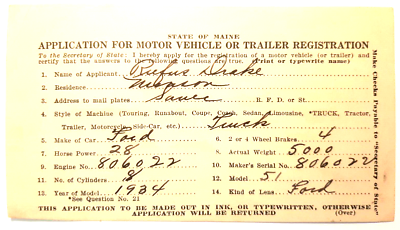 STATE OF MAINE
APPLICATION FOR MOTOR VEHICLE OR TRAILER REGISTRATION
To the Secretary of State: I hereby apply for the registration of a motor vehicle (or trailer) and
certify that the answers to the following questions are true. (Print or typewrite name)
1. Name of Applicant Rufus Drake
2. Residence
3. Address to mail plates Same R. F. D. or St.
4. Style of Machine (Touring, Runabout, Coupe, Coach, Sedan, Limousine, *TRUCK, Tractor,
Trailer, Motorcycle, Side-Car, etc.) Truck
5. Make of Car Ford 6. 2 or 4 Wheel Brakes 4
7. Horse Power 28 8. Actual Weight 5000
9. Engine No. 806022 10. Maker's Serial No. 806022
11. No. of Cylinders 8 12. Model 51
13. Year of Model 1934 14. Kind of Lens Ford
*See Question No. 21
THIS APPLICATION TO BE MADE OUT IN INK, OR TYPEWRITTEN, OTHERWISE
APPLICATION WILL BE RETURNED (Over)
Make Checks Payable to "Secretary of State"